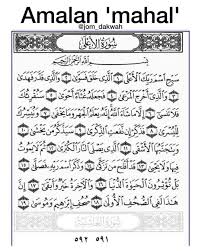 Amalan 'mahal'
@jom_dakwah
سورة الأعلى
بسم الله الرحمن الرحيم
سبح اسم ربك الأعلى ١ الذي خلق فسوى ٢ والذي قدر فهدى
٣ والذي أخرج المرعى ٤ فجعله غثاء أحوى ٥ سنقرئك
فلا تنسى ٦ إلا ما شاء الله إنه يعلم الجهر وما يخفى ٧ ونيسرك
لليسرى ٨ فذكر إن نفعت الذكرى ٩ سيذكر من يخشى ١٠
ويتجنبها الأشقى ١١ الذي يصلى النار الكبرى ١٢ ثم لا يموت
فيها ولا يحيى ١٣ قد أفلح من تزكى ١٤ وذكر اسم ربه فصلى ١٥
بل تؤثرون الحياة الدنيا ١٦ والآخرة خير وأبقى ١٧ إن
هذا لفي الصحف الأولى ١٨ صحف إبراهيم وموسى ١٩
٥٩٢ ٥٩١